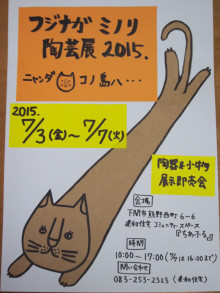 フジナガ ミノリ
陶芸展 2015.
ニャンダ コノ島ハ・・・
2015.
7/3(金)～7/7(火)
陶器と小中物
展示即売会
会場
下関市熊野西町6-6
コミュニティースペース
時間
10:00～17:00(7/7は16:00まで)
問い合わせ
083-253-2323